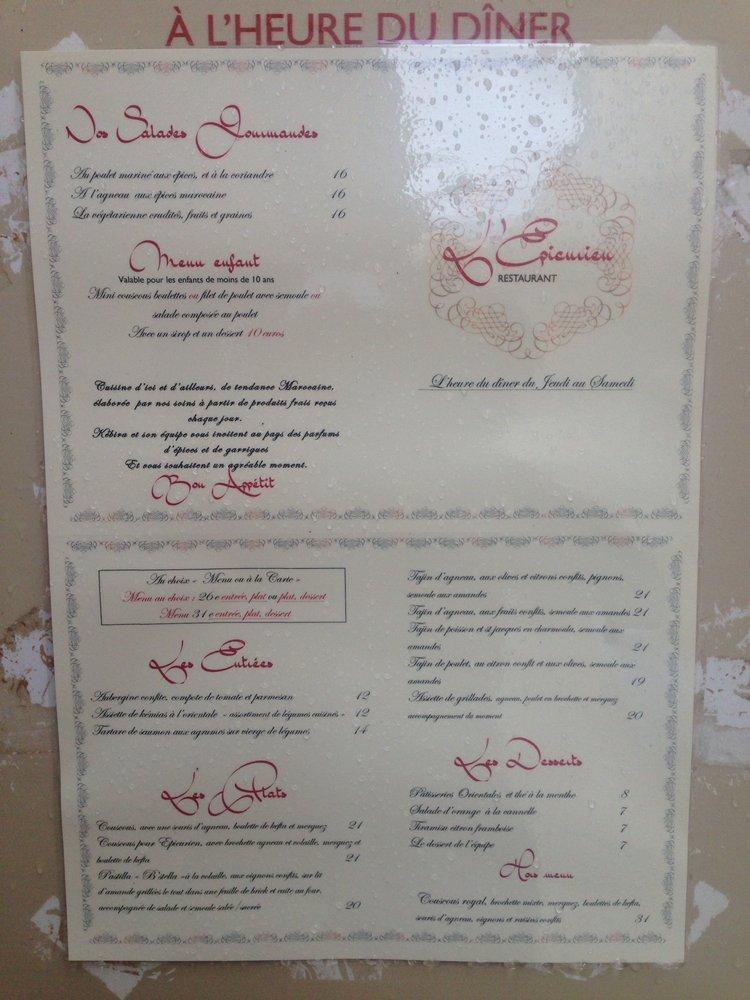 À L'HEURE DU DÎNER
Nos Salades Gourmandes
Au poulet mariné aux épices, et à la coriandre 16
A l'agneau aux épices marocaine 16
La végétarienne crudités, fruits et graines 16
Menu enfant
Valable pour les enfants de moins de 10 ans
Mini couscous boulettes ou filet de poulet avec semoule ou
salade composée au poulet
Avec un sirop et un dessert 10 euros
Cuisine d'ici et d'ailleurs, de tendance Marocaine,
élaborée par nos soins à partir de produits frais reçus
chaque jour.
Kébira et son équipe vous invitent au pays des parfums
d'épices et de garrigues
Et vous souhaitent un agréable moment.
Bon Appétit
L'Epicurien
RESTAURANT
L'heure du dîner du Jeudi au Samedi
Au choix « Menu ou à la Carte »
Menu au choix : 26 e entrée, plat ou plat, dessert
Menu 31 e entrée, plat, dessert
Les Entrées
Aubergine confite, compote de tomate et parmesan 12
Assiette de kémias à l'orientale « assortiment de légumes cuisinés » 12
Tartare de saumon aux agrumes sur vierge de légumes 14
Les Plats
Couscous, avec une souris d'agneau, boulette de kefta et merguez 21
Couscous pour Epicurien, avec brochette agneau et volaille, merguez et
boulette de kefta 21
Pastilla « B'stella » à la volaille, aux oignons confits, sur lit
d'amande grillées le tout dans une feuille de brick et cuite au four,
accompagnée de salade et semoule salée / sucrée 20
Tajin d'agneau, aux olives et citrons confits, pignons,
semoule aux amandes 21
Tajin d'agneau, aux fruits confits, semoule aux amandes 21
Tajin de poisson et st jacques en charmoula, semoule aux
amandes 21
Tajin de poulet, au citron confit et aux olives, semoule aux
amandes 19
Assiette de grillades, agneau, poulet en brochette et merguez
accompagnement du moment 20
Les Desserts
Pâtisseries Orientales et thé à la menthe 8
Salade d'orange à la cannelle 7
Tiramisu citron framboise 7
Le dessert de l'équipe 7
Hors menu
Couscous royal, brochette mixte, merguez, boulettes de kefta,
souris d'agneau, oignons et raisins confits 31